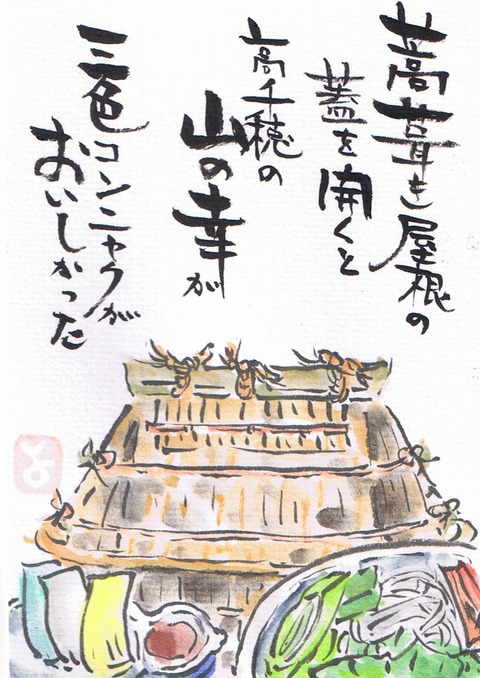 蒿葺き屋根の
蓋を開くと
高千穂の
山の幸が
三色コンニャクが
おいしかった